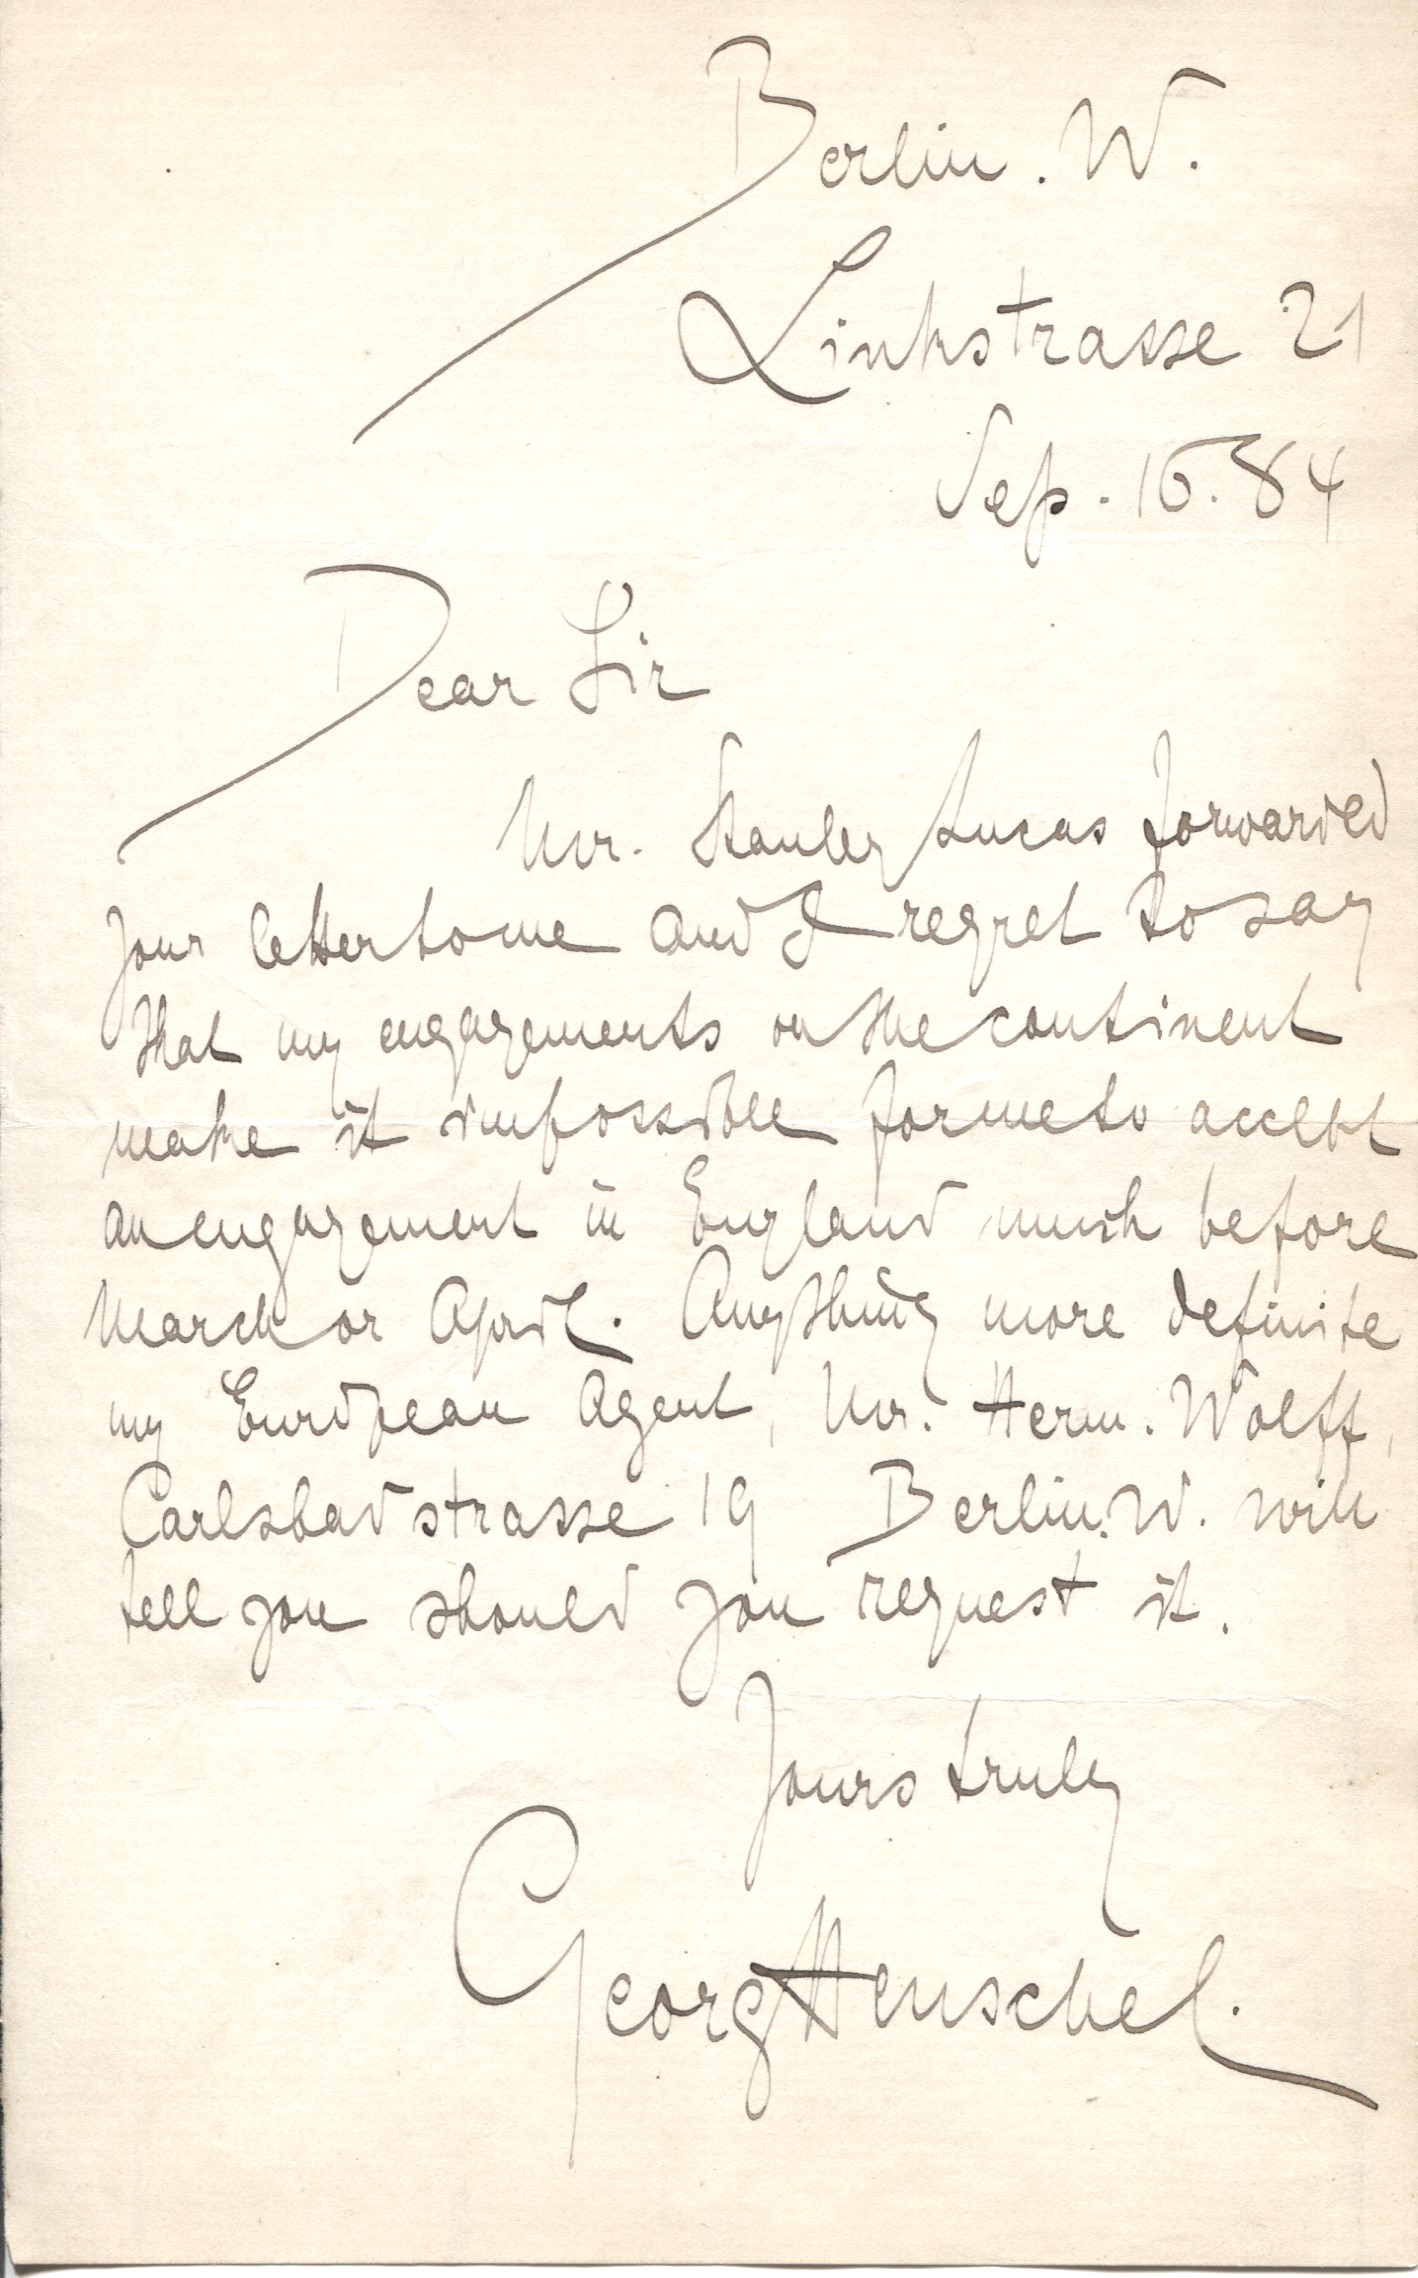 Berlin. W.
Linkstrasse 21
Sep. 16. 84
Dear Sir
Mr. Stanley Lucas forwarded
your letter to me and I regret to say
that my engagements on the continent
make it impossible for me to accept
an engagement in England much before
March or April. Anything more definite
my European Agent, Mr. Herm. Wolff,
Carlsbadstrasse 19 Berlin. W. will
tell you should you request it.
Yours truly
Georg Henschel.